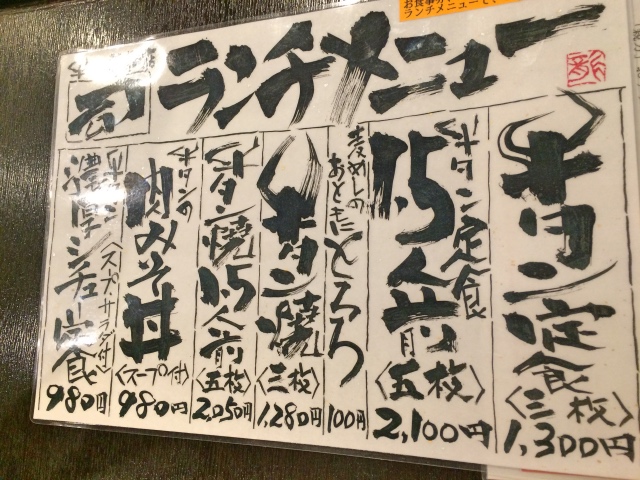 お食事
ランチメニューで
司 ランチメニュー
牛タン定食
〈三枚〉
1,300円
牛タン定食
1.5人前
〈五枚〉
2,100円
麦めしの
おともに
とろろ
100円
牛タン焼
〈三枚〉
1,280円
牛タン焼
1.5人前
〈五枚〉
2,050円
牛タンの
肉みそ丼
〈スープ付〉
980円
牛タン
濃厚シチュー定食
〈スープ・サラダ付〉
980円